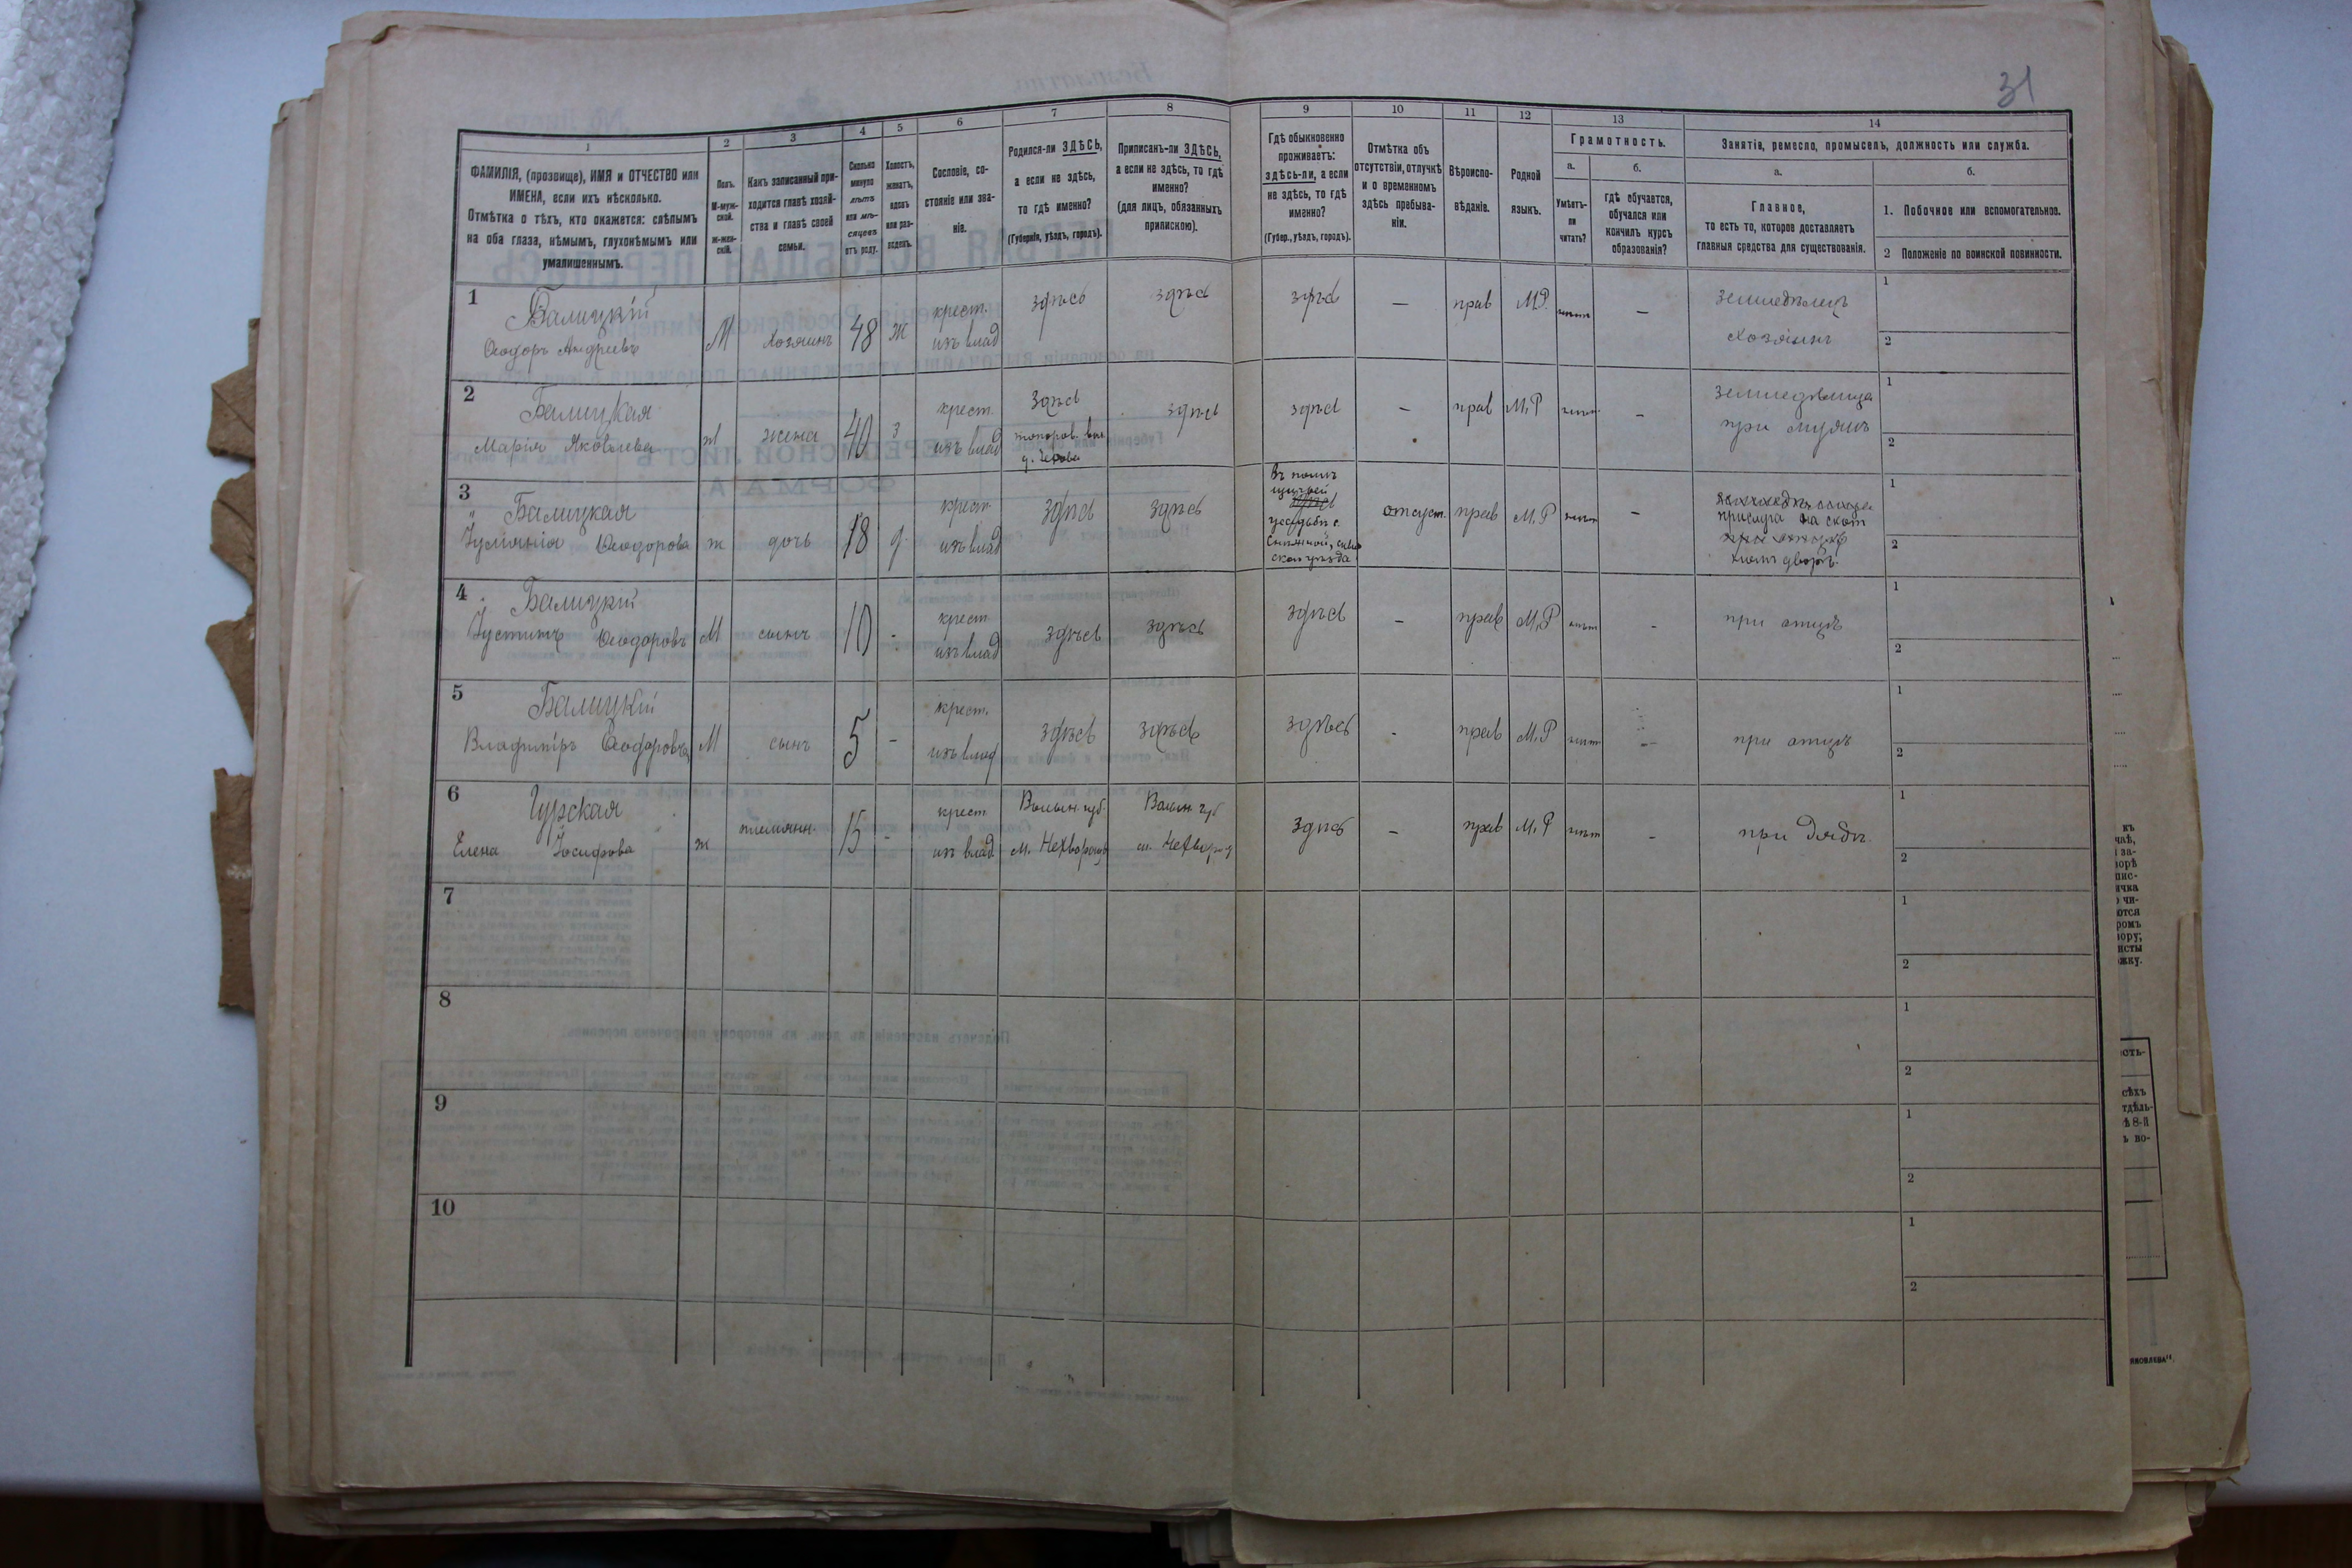 31
1
2
3
4
5
6
7
8
9
10
11
12
13
14
ФАМИЛІЯ, (прозвище), ИМЯ и ОТЧЕСТВО или
ИМЕНА, если ихъ нѣсколько.
Отмѣтка о тѣхъ, кто окажется: слѣпымъ
на оба глаза, нѣмымъ, глухонѣмымъ или
умалишеннымъ.
Полъ.
М-муж-
ской.
ж-жен-
скій.
Какъ записанный при-
ходится главѣ хозяй-
ства и главѣ своей
семьи.
Сколько
минуло
лѣтъ
или мѣ-
сяцевъ
отъ роду.
Холостъ,
женатъ,
вдовъ
или раз-
веденъ.
Сословіе, со-
стояніе или зва-
ніе.
Родился-ли ЗДѢСЬ,
а если не здѣсь,
то гдѣ именно?
(Губернія, уѣздъ, городъ).
Приписанъ-ли ЗДѢСЬ,
а если не здѣсь, то гдѣ
именно?
(для лицъ, обязанныхъ
припискою).
Гдѣ обыкновенно
проживаетъ:
здѣсь-ли, а если
не здѣсь, то гдѣ
именно?
(Губер., уѣздъ, городъ).
Отмѣтка объ
отсутствіи, отлучкѣ
и о временномъ
здѣсь пребыва-
ніи.
Вѣроиспо-
вѣданіе.
Родной
языкъ.
Грамотность.
а.
Умѣетъ-
ли
читать?
б.
гдѣ обучается,
обучался или
кончилъ курсъ
образованія?
Занятія, ремесло, промыселъ, должность или служба.
а.
Главное,
то есть то, которое доставляетъ
главныя средства для существованія.
б.
1. Побочное или вспомогательное.
2 Положеніе по воинской повинности.
1
Балицкій
Ѳеодоръ Андреевъ
М
хозяинъ
48
ж
крест.
изъ влад
здѣсь
здѣсь
здѣсь
—
прав
М.Р.
нѣтъ
—
земледѣлецъ
хозяинъ
1
2
2
Балицкая
Марія Яковлева
ж
жена
40
з
крест.
изъ влад
здѣсь
здѣсь
здѣсь
—
прав
М.Р
нѣтъ
—
земледѣлица
при мужѣ
1
2
3
Балицкая
Ѳеодорова
ж
дочь
18
д.
крест
изъ влад
здѣсь
здѣсь
отсут.
прав
М.Р
нѣтъ
—
1
2
4
Балицкій
Іустинъ Ѳеодоровъ
М
сынъ
10
-
крест
изъ влад
здѣсь
здѣсь
здѣсь
—
прав
М.Р
нѣтъ
-
при отцѣ
1
2
5
Балицкій
Владиміръ Ѳеодоровъ
М
сынъ
5
-
крест.
изъ влад
здѣсь
здѣсь
здѣсь
-
прав
М.Р
нѣтъ
—
при отцѣ
1
2
6
Гурская
Елена Іосифова
ж
племянн.
15
-
крест
изъ влад
Волын губ.
Волын губ
здѣсь
—
прав
М.Р
нѣт
-
при дядѣ.
1
2
7
1
2
8
1
2
9
1
2
10
1
2